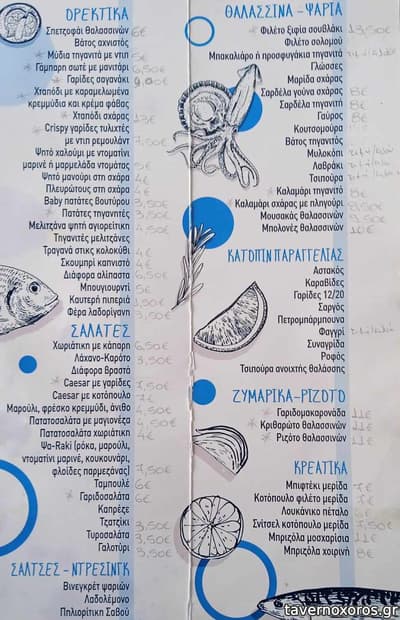 ΟΡΕΚΤΙΚΑ
Σπετζοφάι θαλασσινών 6€
Βάτος αχνιστός
Μύδια τηγανιτά με ντιπ 5€
Γάμπαρη σωτέ με μανιτάρι 6,50€
Γαρίδες σαγανάκι
Χταπόδι με καραμελωμένα
κρεμμύδια και κρέμα φάβας
Χταπόδι σχάρας 13€
Crispy γαρίδες τυλιχτές
με ντιπ ρεμουλάντ
Ψητό χαλούμι με ντοματίνι
μαρινέ ή μαρμελάδα ντομάτας 5€
Ψητό μανούρι στη σχάρα 4€
Πλευρώτους στη σχάρα 4€
Baby πατάτες Βουτύρου 3,50€
Πατάτες τηγανιτές 3,50€
Μελιτζάνα ψητή αγιορείτικη
Τηγανιτές μελιτζάνες
Τραγανά στικς κολοκύθι 4€
Σκουμπρί καπνιστό 4€
Διάφορα αλίπαστα 6,50€
Μπουγιουρντί 5€
Καυτερή πιπεριά
Φέρα λαδορίγανη 3,50€
ΣΑΛΑΤΕΣ
Χωριάτικη με κάπαρη 6,50€
Λάχανο-Καρότο 3,50€
Διάφορα βραστά
Caesar με γαρίδες
Caesar με κοτόπουλο
Μαρούλι, φρέσκο κρεμμύδι, άνιθο
Πατατοσαλάτα με μαγιονέζα
Πατατοσαλάτα χωριάτικη 4€
Ψα-Raki (ρόκα, μαρούλι,
ντοματίνι μαρινέ, κουκουνάρι,
φλοίδες παρμεζάνας)
Ταμπουλέ 6€
Γαριδοσαλάτα 6€
Καπρέζε
Τζατζίκι 3,50€
Τυροσαλάτα 3,50€
Γαλοτύρι 3,50€
ΣΑΛΤΣΕΣ - ΝΤΡΕΣΙΝΓΚ
Βινεγκρέτ ψαριών
Λαδολέμονο
Πηλιορίτικη Σαβού
ΘΑΛΑΣΣΙΝΑ - ΨΑΡΙΑ
Φιλέτο ξιφία σουβλάκι 13,50€
Φιλέτο σολομού
Μπακαλιάρο ή προσφυγάκια τηγανιτά
Γλώσσες
Μαρίδα σχάρας
Σαρδέλα γούνα σχάρας 8€
Σαρδέλα τηγανιτή 8€
Γαύρος 8€
Κουτσομούρα
Βάτος τηγανιτός
Μυλοκόπι
Λαβράκι
Τσιπούρα
Καλαμάρι τηγανιτό 8€
Καλαμάρι σχάρας με πληγούρι
Μουσακάς θαλασσινών
Μπολονέζ θαλασσινών 10€
ΚΑΤΟΠΙΝ ΠΑΡΑΓΓΕΛΙΑΣ
Αστακός
Καραβίδες
Γαρίδες 12/20
Σαργός
Πετρομπάρμπουνα
Φαγγρί
Συναγρίδα
Ροφός
Τσιπούρα ανοιχτής θαλάσσης
ΖΥΜΑΡΙΚΑ-ΡΙΖΟΤΟ
Γαριδομακαρονάδα 11€
Κριθαρώτο θαλασσινών 11€
Ριζότο θαλασσινών 11€
ΚΡΕΑΤΙΚΑ
Μπιφτέκι μερίδα 7€
Κοτόπουλο φιλέτο μερίδα 7€
Λουκάνικο πέταλο 6€
Σνίτσελ κοτόπουλο μερίδα 7,50€
Μπριζόλα μοσχαρίσια 11€
Μπριζόλα χοιρινή 8€
tavernoxoros.gr